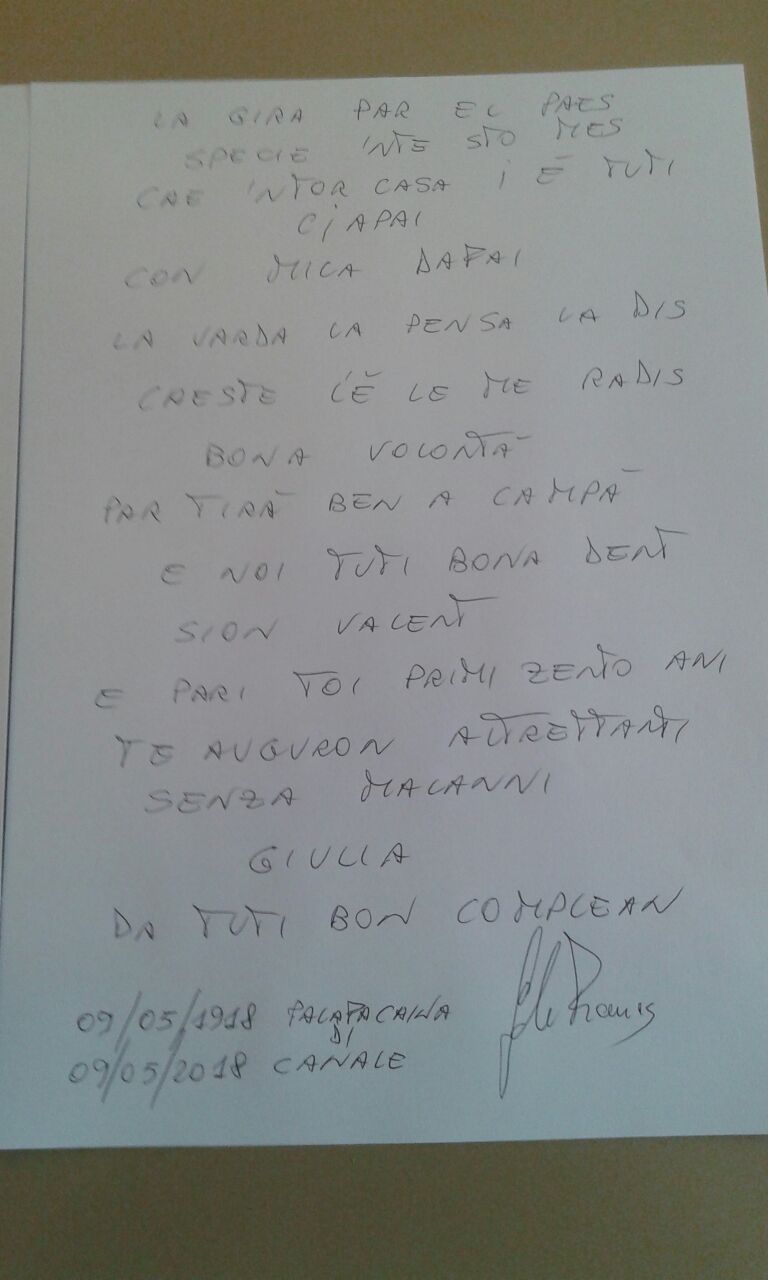 LA GIRA PAR EL PAES
SPECIE 'NTE STO MES
CHE 'NTOR CASA I È TUTI
CIAPAI
CON MICA DAFAI
LA VARDA LA PENSA LA DIS
CHESTE L'È LE ME RADIS
BONA VOLONTÀ
PAR TIRÀ BEN A CAMPÀ
E NOI TUTI BONA DENT
SION VALENT
E PARI TOI PRIMI ZENTO ANI
TE AUGURON ALTRETTANTI
SENZA MALANNI
GIULIA
DA TUTI BON COMPLEAN
09/05/1918 PALAFACAINA
DI
09/05/2018 CANALE